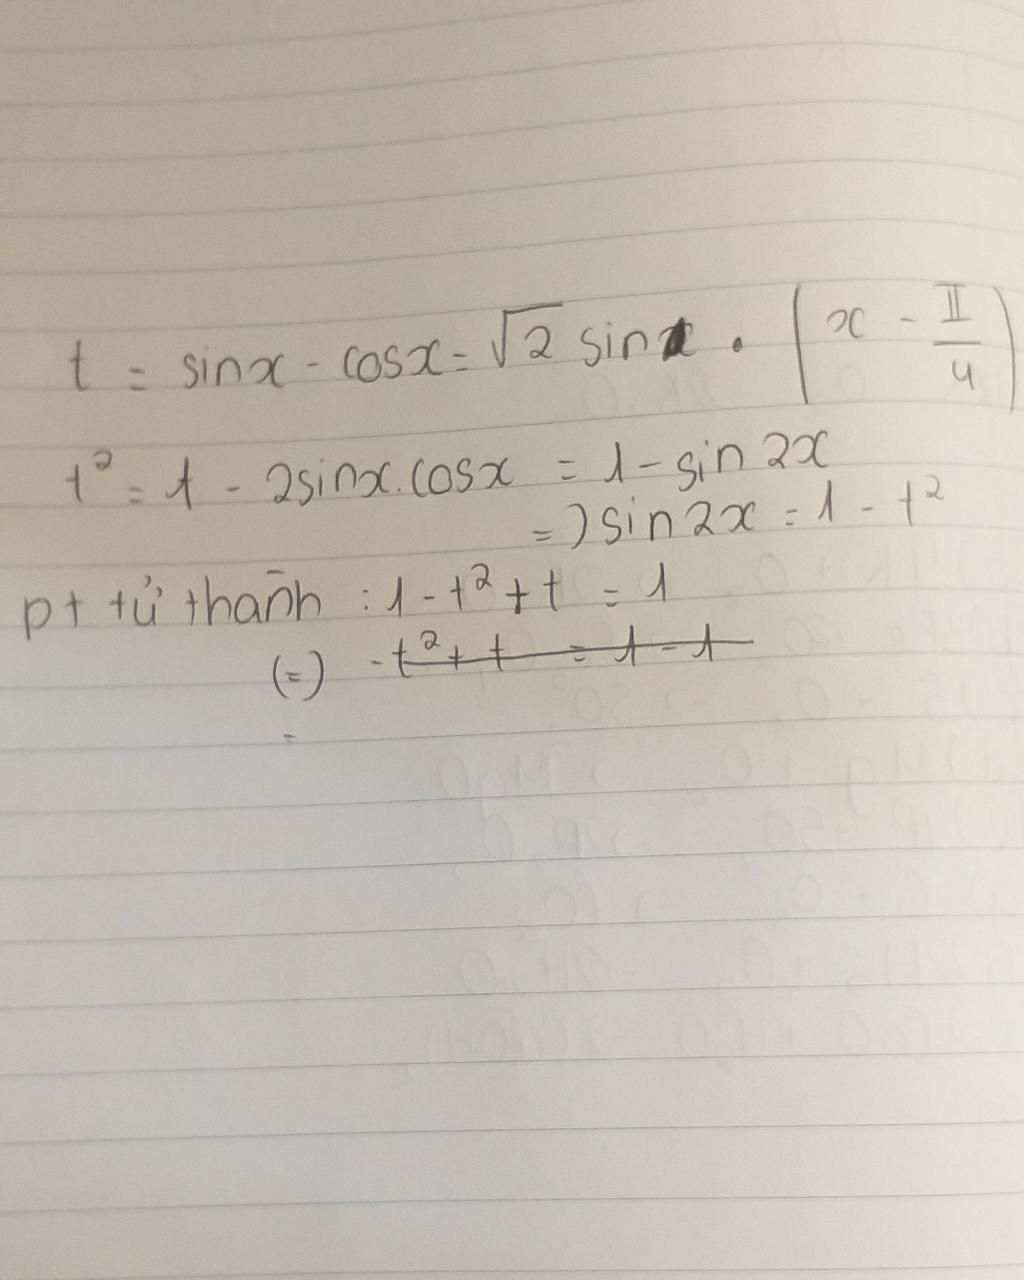 t = sinx - cosx = √2 sin . (x - π/4)
t² = 1 - 2sinx.cosx = 1 - sin 2x
=) sin 2x = 1 - t²
pt tử thành : 1 - t² + t = 1
(=) -t² + t = 1 - 1
=